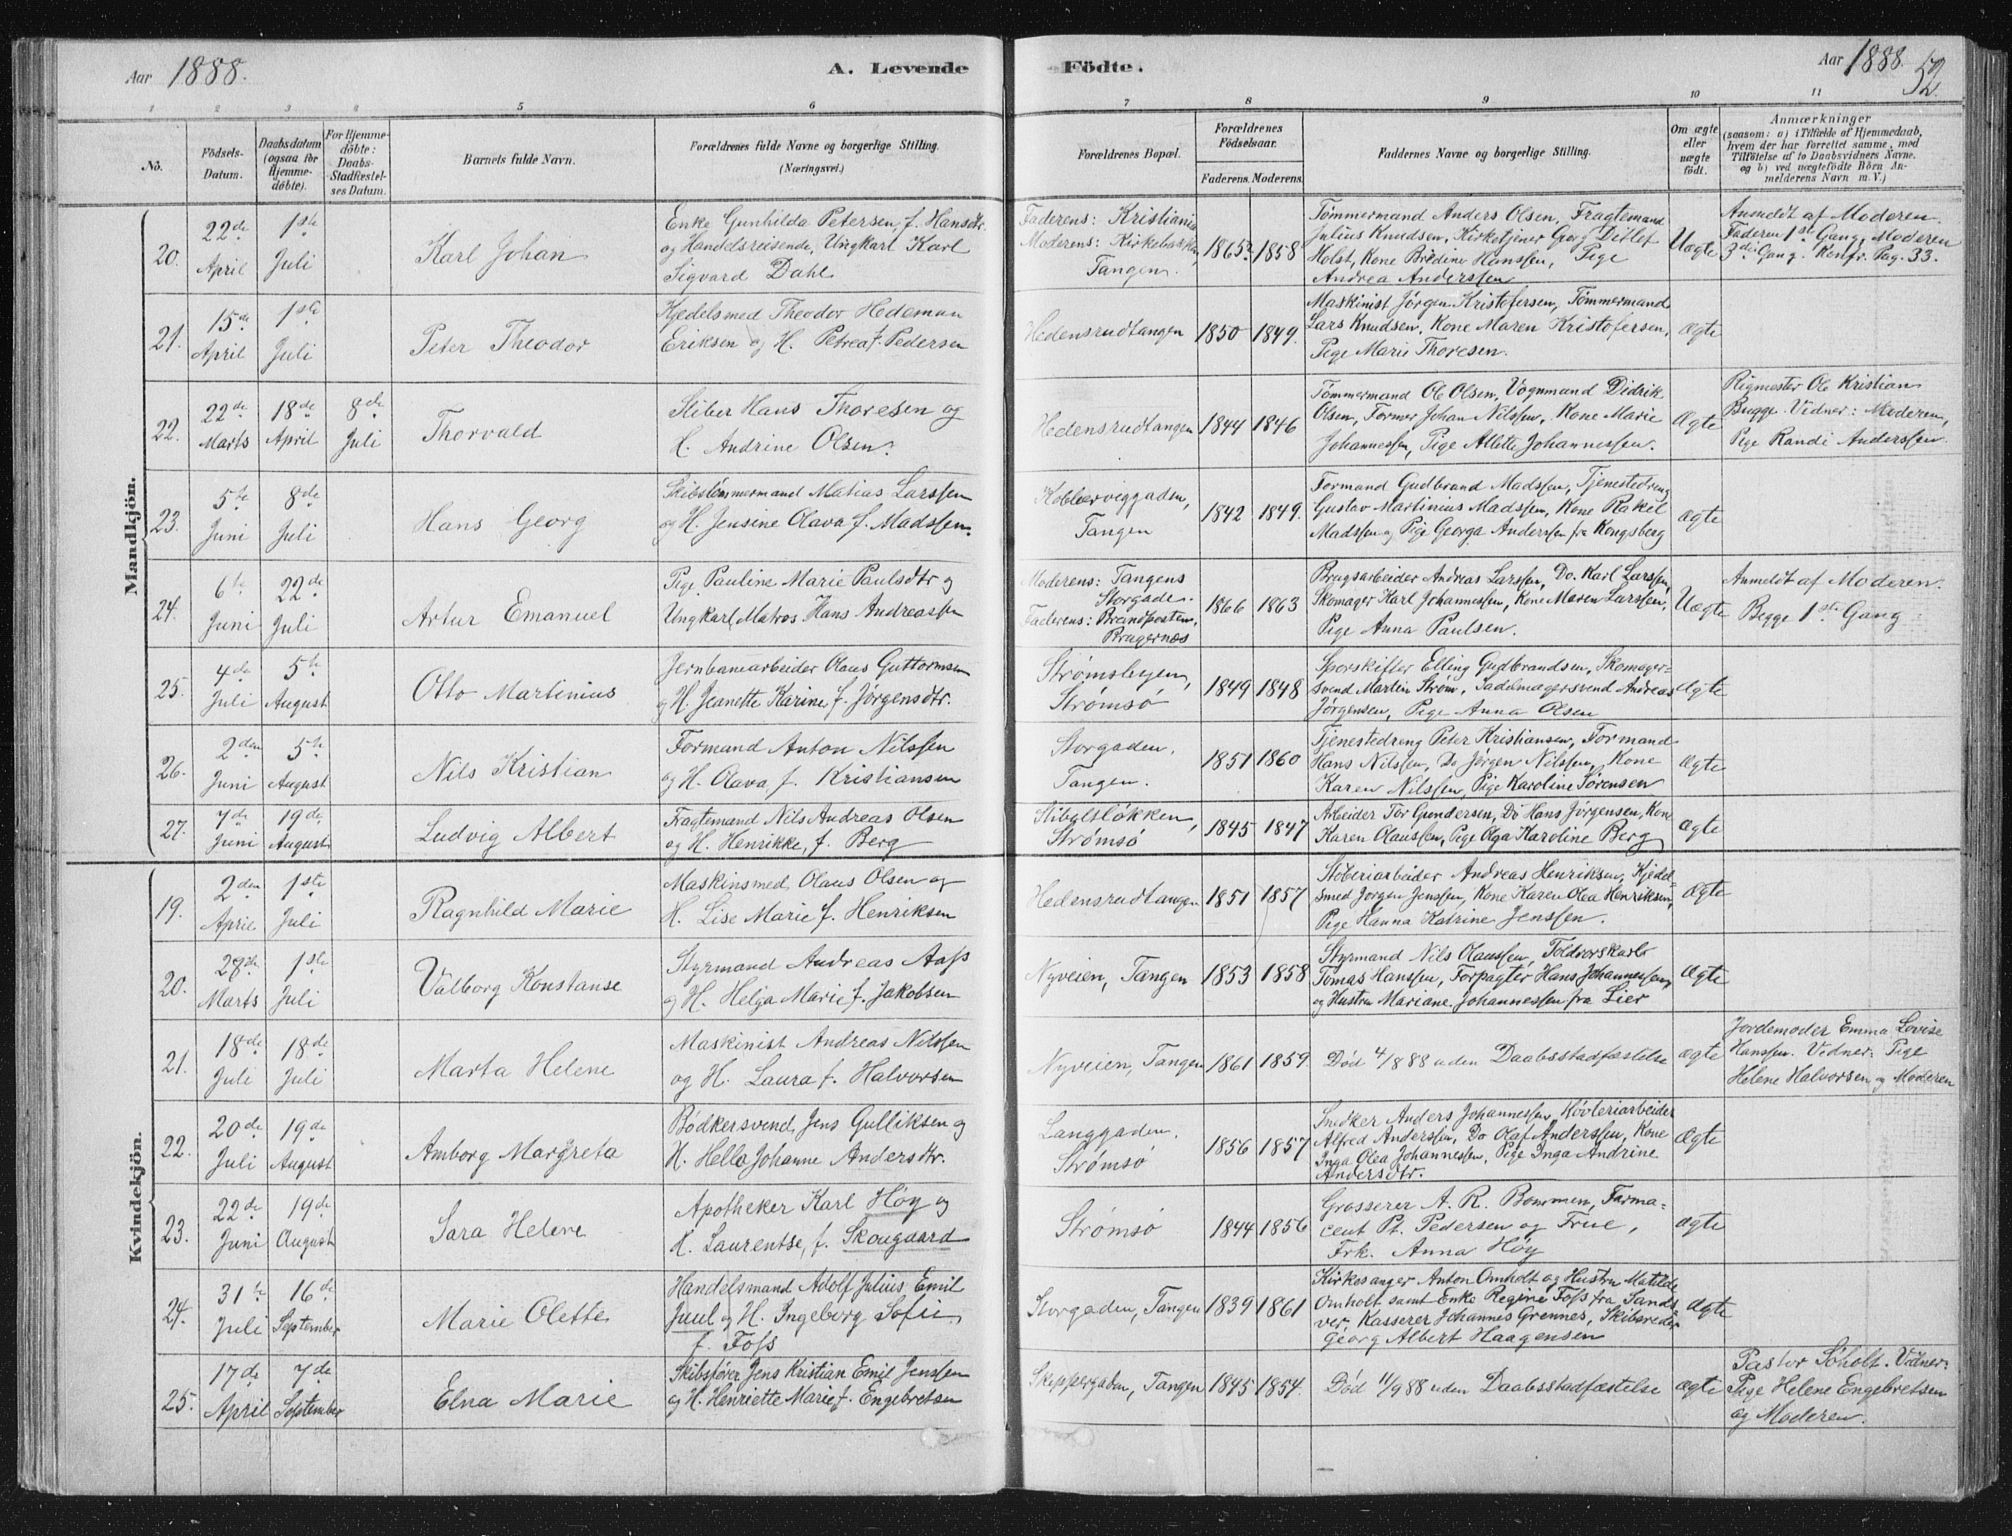 Aar 1888.
A. Levende Födte.
Aar 1888. 52.
1 2 3 4 5 6 7 8 9 10 11
No.
Födsels-Datum.
Daabsdatum (ogsaa for Hjemmedöbte).
For Hjemmedöbte: Daabs-Stadfæstelses Datum.
Barnets fulde Navn.
Forældrenes fulde Navne og borgerlige Stilling. (Næringsvei.)
Forældrenes Bopæl.
Forældrenes Födselsaar.
Faderens. Moderens.
Faddernes Navne og borgerlige Stilling.
Om ægte eller uægte födt.
Anmærkninger
(saasom: a) i Tilfælde af Hjemmedaab,
hvem der har forrettet samme, med
Tilföielse af to Daabsvidners Navne.
og b) ved uægtefödte Börn Anmelderens Navn m. V.)
Mandkjön.
20.
22de April
1ste Juli
Karl Johan
Enke Gunhilda Petersen, f. Hansdtr
og Handelsreisende, Ungkarl Karl
Sigvard Dahl
Faderens: Kristiania
Moderens: Kirkebakken,
Tangen.
1865 1858
Tömmermand Anders Olsen, Fragtemand
Julius Knudsen, Kirketjener Georg Ditlef
Holst, Kone Bredine Hanssen, Pige
Andrea Anderssen
Uægte
Anmeldt af Moderen.
Faderen 1ste Gang, Moderen
3di Gang. Konfr. Pag. 33.
21.
15de April
1ste Juli
Peter Theodor
Kjedelsmed Theodor Hedeman
Eriksen og H. Petrea f. Pedersen
Hedensrudtangen
1850 1849.
Maskinist Jörgen Kristofersen, Tömmermand
Lars Knudsen, Kone Maren Kristofersen,
Pige Marie Thoresen.
Ægte
22.
22de Marts
18de April
8de Juli
Thorvald
Stiber Hans Thoresen og
H. Andrine Olsen.
Hedensrudtangen
1844 1846
Tömmermand Ole Olsen, Vognmand Didrik
Olsen, Former Johan Nilssen, Kone Marie
Johannessen, Pige Allette Johannessen.
Ægte
Rigmester Ole Kristian
Bugge. Vidner: Moderen,
Pige Randi Anderssen.
23.
5te Juni
8de Juli
Hans Georg
Skibstömmermand Matias Larssen
og H. Jensine Olava f. Madssen.
Kobbervikgaden,
Tangen
1842 1849.
Formand Gudbrand Madssen, Tjenestedreng
Gustav Martinius Madssen, Kone Rakel
Madssen og Pige Georga Anderssen fra Kongsberg
Ægte
24.
6te Juni
22de Juli
Artur Emanuel
Pige Pauline Marie Paulsdtr og
Ungkarl, Matros Hans Andreassen
Moderens: Tangens
Storgade.
Faderens: Brandposten,
Bragernæs
1866 1863
Brugsarbeider Andreas Larssen, Do. Karl Larssen,
Skomager Karl Johannessen, Kone Maren Larssen,
Pige Anna Paulsen.
Uægte
Anmeldt af Moderen.
Begge 1ste Gang
25.
4de Juli
5te August
Otto Martinius
Jernbanearbeider Olaus Guttormsen
og H. Jeanette Karine, f. Jörgensdtr.
Strömshegen,
Strömsö
1849 1848
Sporskifter Elling Gudbrandsen, Skomager-
svend Martin Ström, Sadelmagersvend Andreas
Jörgensen, Pige Anna Olsen
Ægte
26.
2den Juni
5te August
Nils Kristian
Formand Anton Nilssen
og H. Olava, f. Kristiansen
Storgaden,
Tangen.
1851 1860
Tjenestedreng Peter Kristiansen, Formand
Hans Nilssen, Do Jörgen Nilssen, Kone
Karen Nilssen, Pige Karoline Sörensen
Ægte
27.
7de Juni
19de August
Ludvig Albert
Fragtemand Nils Andreas Olsen
og H. Henrikke, f. Berg
Stiboltslökken,
Strömsö
1845 1847
Arbeider Tor Gundersen, Do Hans Jörgensen, Kone
Karen Olaussen, Pige Olga Karoline Berg
Ægte
Kvindekjön.
19.
2den April
1ste Juli
Ragnhild Marie
Maskinsmed, Olaus Olsen og
H. Lise Marie f. Henriksen
Hedensrudtangen
1851 1857
Stöberiarbeider Andreas Henriksen, Kjedel-
smed Jörgen Jenssen, Kone Karen Olea Henriksen,
Pige Hanna Katrine Jenssen.
Ægte
20.
28de Marts
1ste Juli
Valborg Konstanse
Styrmand Andreas Aass
og H. Helga Marie f. Jakobsen
Nyveien, Tangen
1853 1858
Styrmand Nils Olaussen, Toldvorskarl
Tomas Hanssen, Forpagter Hans Johannessen
og Hustru Mariane Johannessen fra Lier
Ægte
21.
18de Juli
18de Juli
Marta Helene
Maskinist Andreas Nilssen
og H. Laura f. Halvorsen
Nyveien, Tangen
1861 1859.
Död 4/8 88 uden Daabsstadfæstelse
Ægte
Jordemoder Emma Lovise
Hanssen. Vidner: Pige
Helene Halvorsen og Moderen
22.
20de Juli
19de August
Amborg Margreta
Bödkersvend Jens Gulliksen og
H. Hella Johanne Andersdtr.
Langgaden,
Strömsö
1856 1857
Snedker Anders Johannessen, Hövleriarbeider
Alfred Anderssen, Do Olaf Anderssen, Kone
Inga Olea Johannessen, Pige Inga Andrine
Andersdtr.
Ægte
23.
22de Juni
19de August
Sara Helene
Apotheker Karl Höy og
H. Laurentse, f. Skougaard
Strömsö
1844 1856
Grosserer A. R. Bommen, Farma-
ceut Pt. Pedersen og Frue,
Frk. Anna Höy
Ægte
24.
31te Juli
16de September
Marie Olette
Handelsmand Adolf Julius Emil
Juul og H. Ingeborg Sofie
f. Foss
Storgaden, Tangen
1839 1861
Kirkesanger Anton Omholt og Hustru Matilde
Omholt samt Enke Regine Foss fra Sands-
ver, Kasserer Johannes Grennes, Skibsreder
Georg Albert Haagensen
Ægte
25.
17de April
7de September
Elna Marie
Skibsförer Jens Kristian Emil Jenssen
og H. Henriette Marie f. Engebretsen
Skippergaden, Tangen
1845 1854.
Död 11/9 88 uden Daabsstadfæstelse
Ægte
Pastor Sö­holt. Vidner:
Pige Helene Engebretsen
og Moderen.